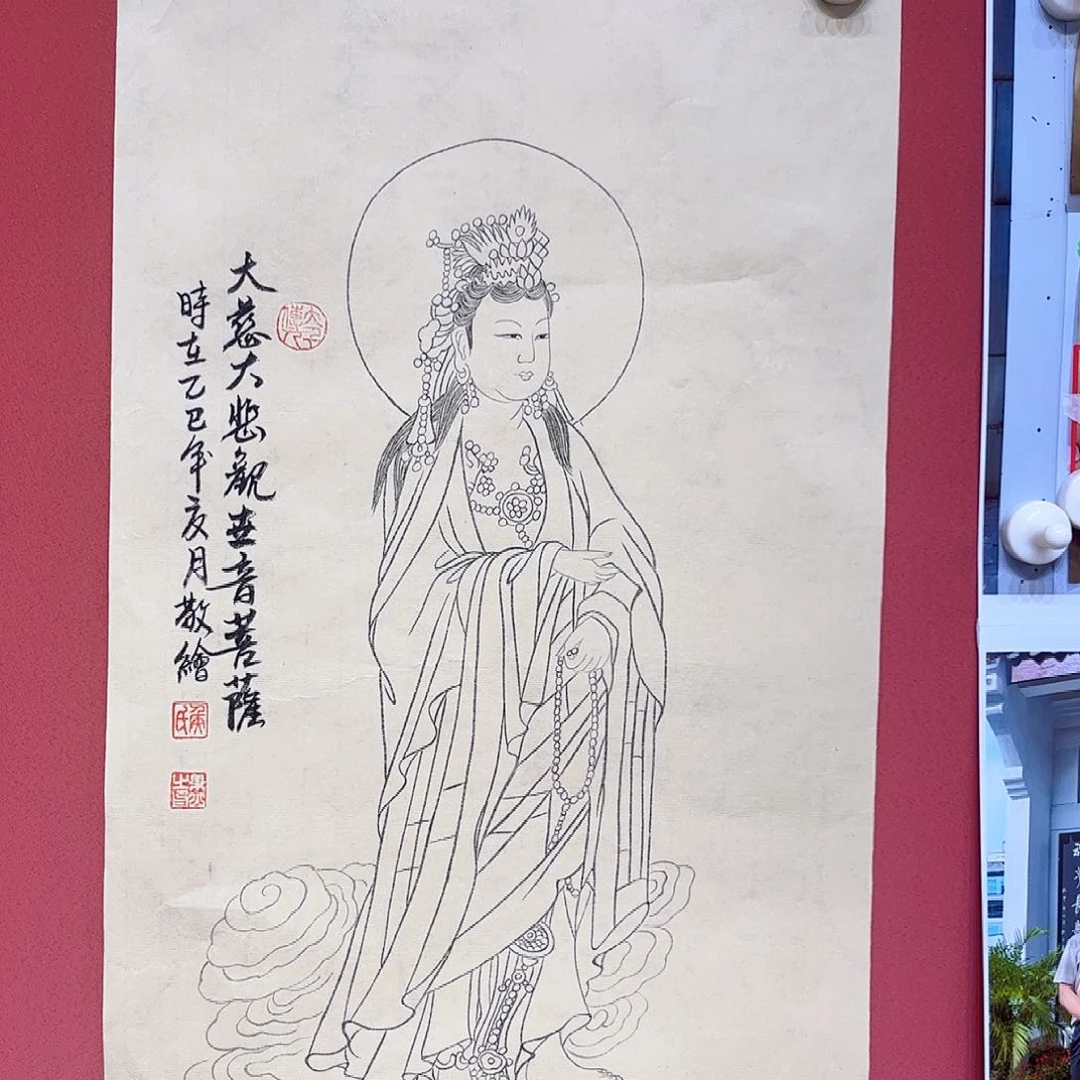 大慈大悲觀世音菩薩
時在乙巳年亥月敬繪